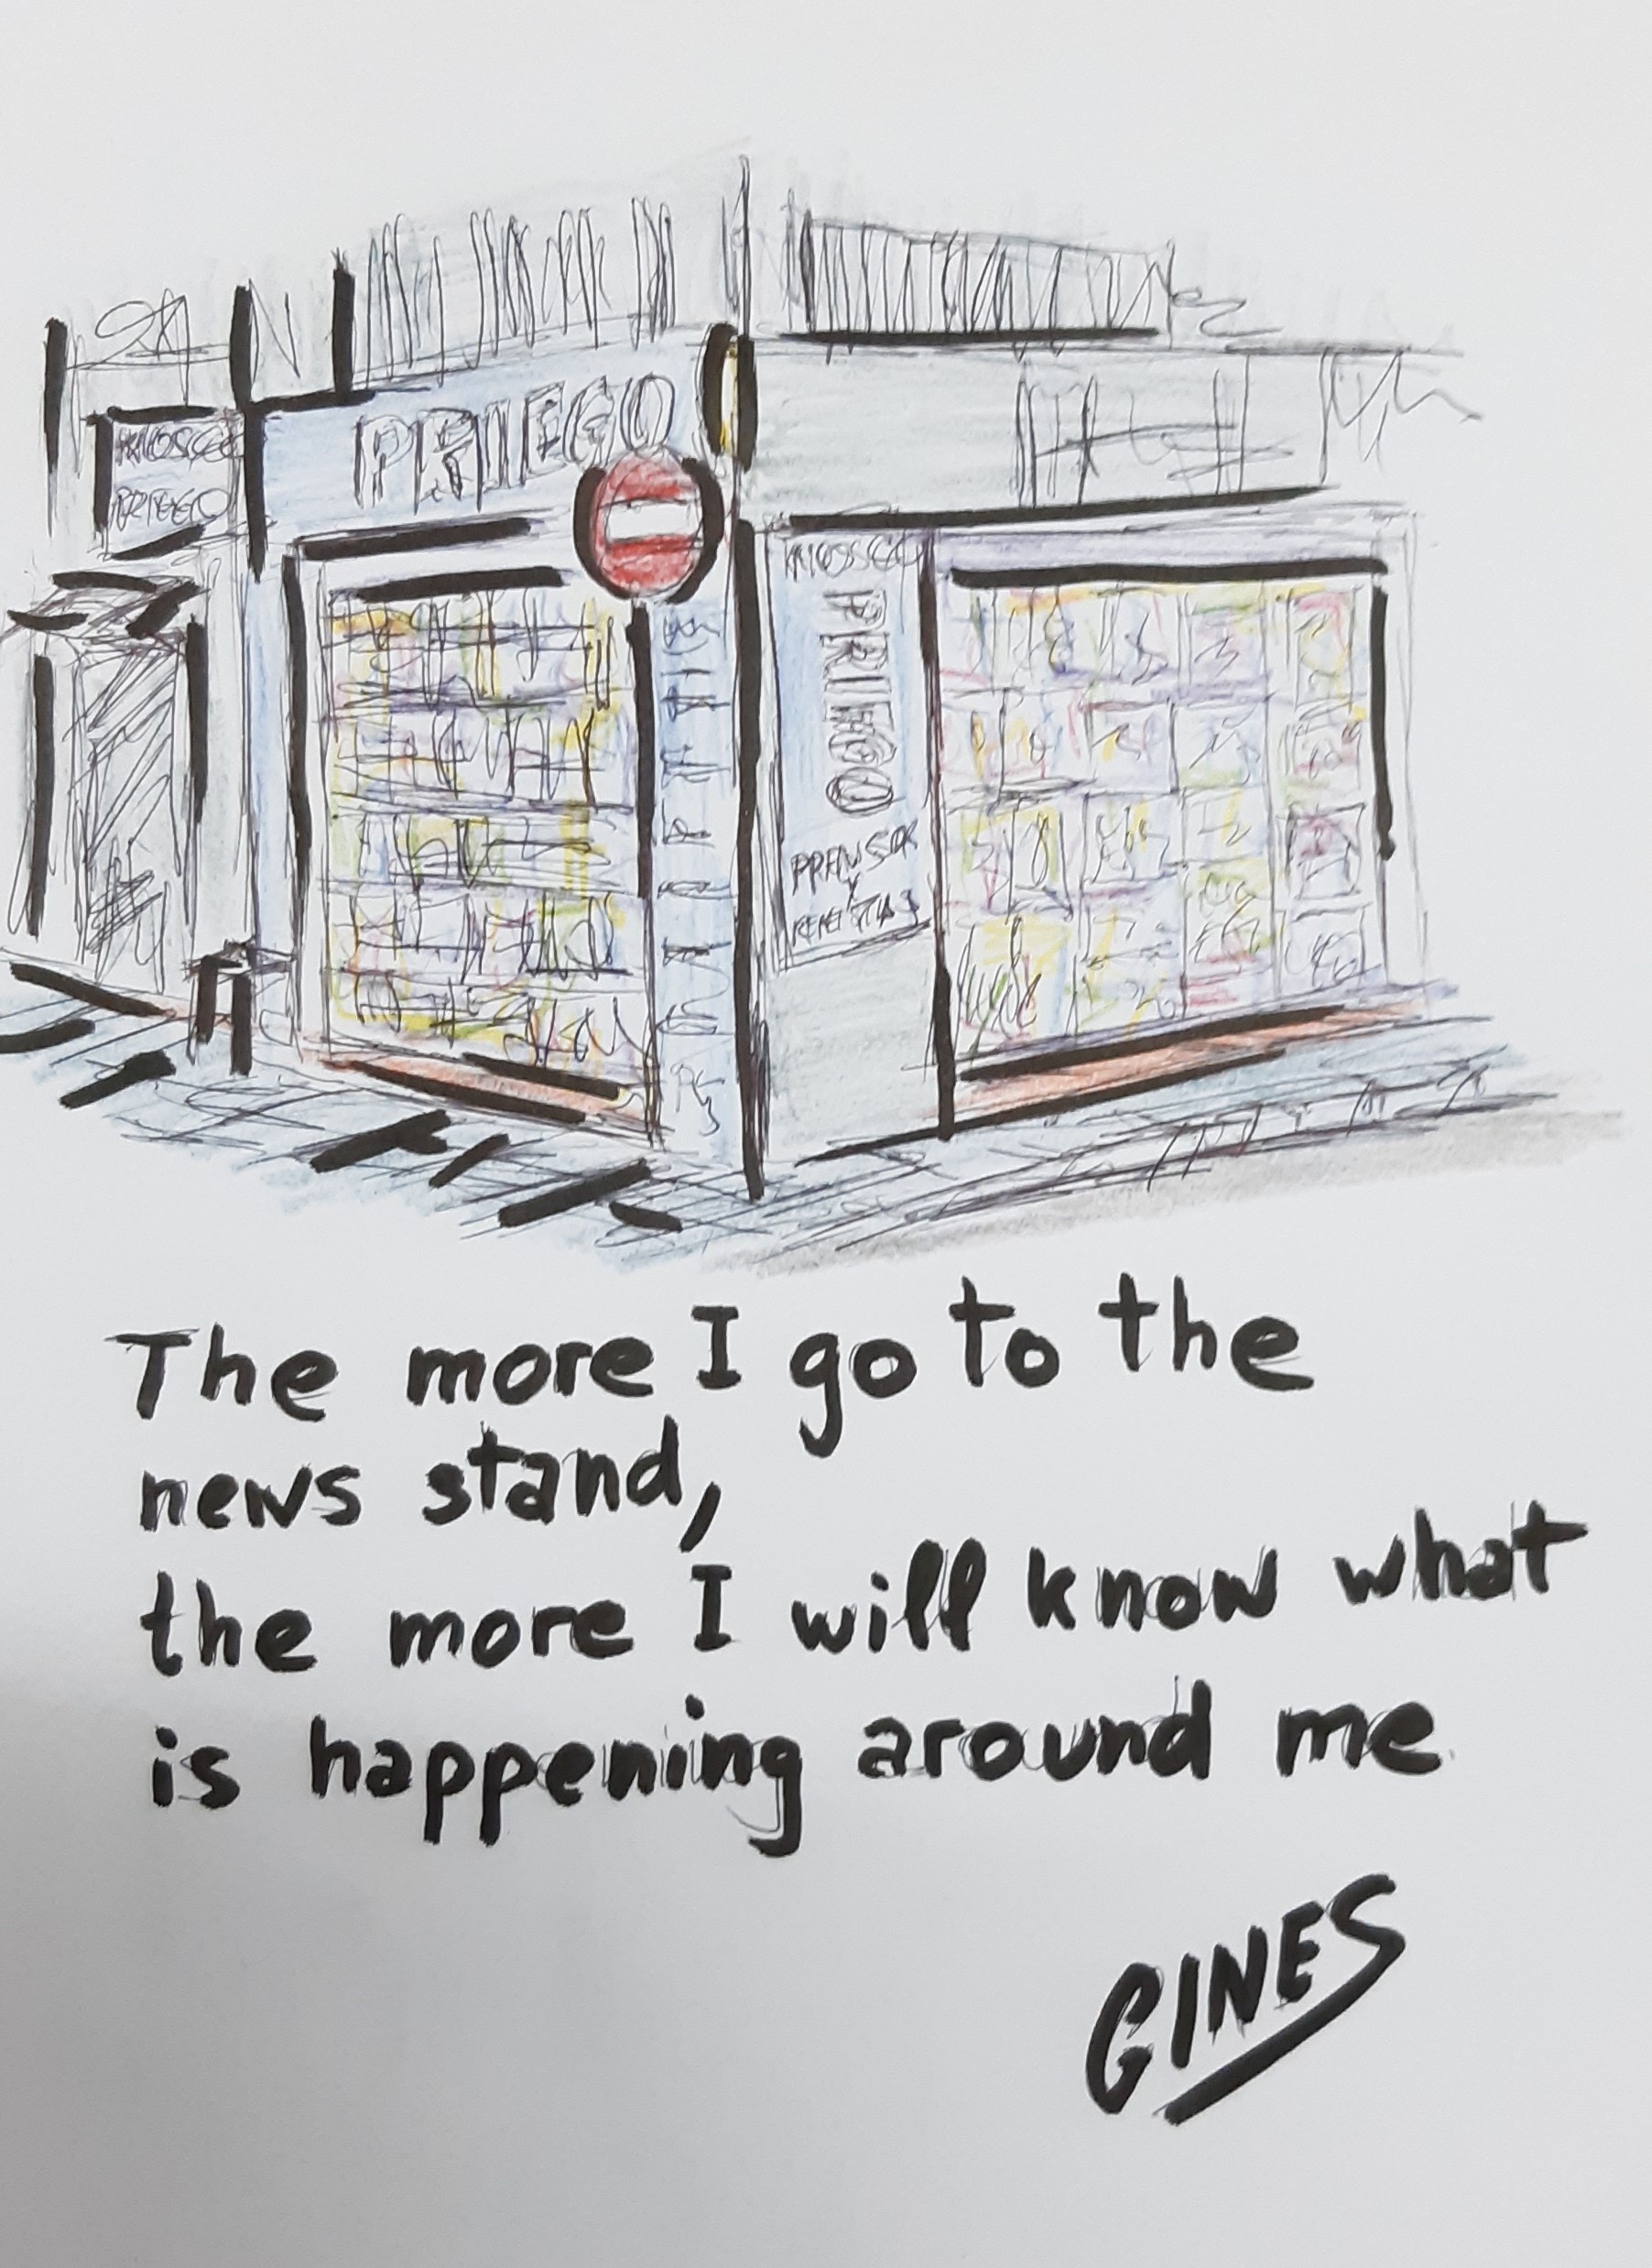 PRIEGO
KIOSCO
PRIEGO
KIOSCO
PRIEGO
PRENSA
Y
REVISTAS
The more I go to the
news stand,
the more I will know what
is happening around me
GINES